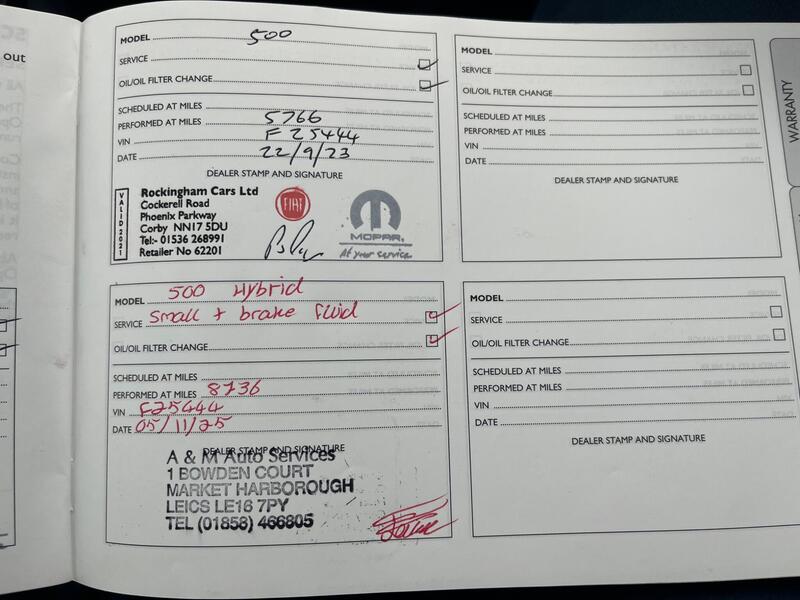 out
MODEL 500
SERVICE
OIL/OIL FILTER CHANGE
SCHEDULED AT MILES
PERFORMED AT MILES 5766
VIN F25444
DATE 22/9/23
DEALER STAMP AND SIGNATURE
VALID 2021
Rockingham Cars Ltd
Cockerell Road
Phoenix Parkway
Corby NN17 5DU
Tel:- 01536 268991
Retailer No 62201
FIAT
MOPAR
At your service
MODEL
SERVICE
OIL/OIL FILTER CHANGE
SCHEDULED AT MILES
PERFORMED AT MILES
VIN
DATE
DEALER STAMP AND SIGNATURE
WARRANTY
MODEL 500 Hybrid
SERVICE Small + brake fluid
OIL/OIL FILTER CHANGE
SCHEDULED AT MILES
PERFORMED AT MILES 8736
VIN F25444
DATE 05/11/25
DEALER STAMP AND SIGNATURE
A & M Auto Services
1 BOWDEN COURT
MARKET HARBOROUGH
LEICS LE16 7PY
TEL (01858) 466805
MODEL
SERVICE
OIL/OIL FILTER CHANGE
SCHEDULED AT MILES
PERFORMED AT MILES
VIN
DATE
DEALER STAMP AND SIGNATURE